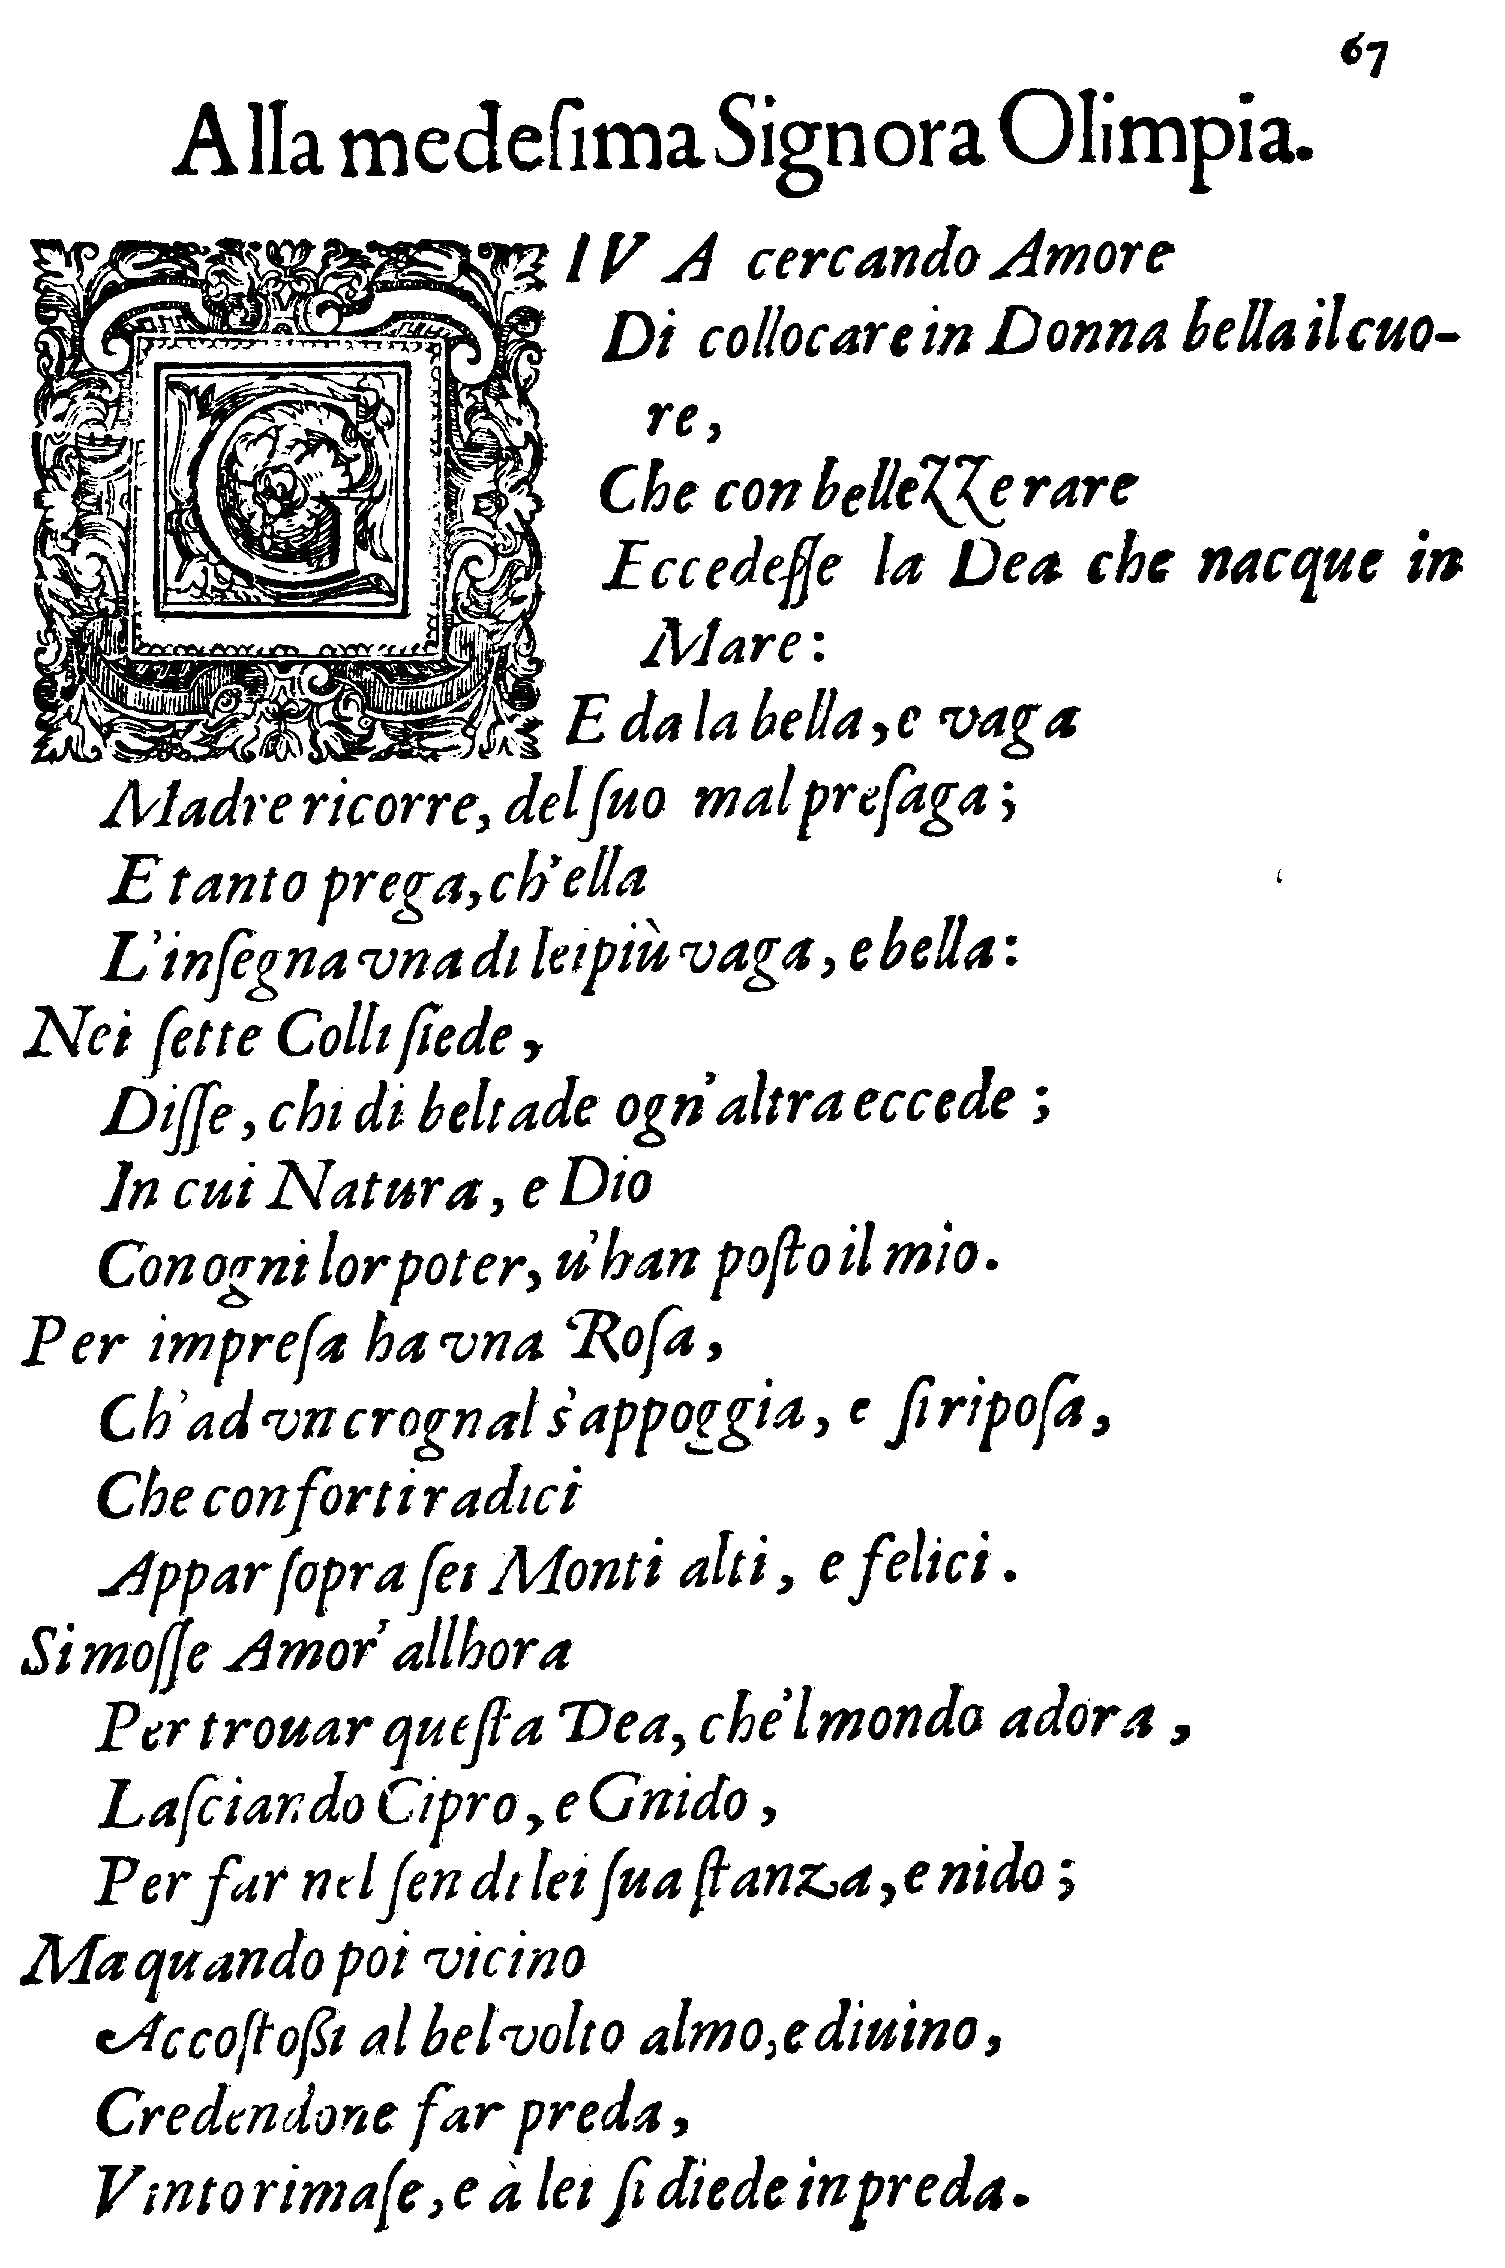 67
Alla medeſima Signora Olimpia.
GIVA cercando Amore
Di collocare in Donna bella il cuo-
re,
Che con bellezze rare
Eccedeſſe la Dea che nacque in
Mare:
E da la bella, e vaga
Madre ricorre, del ſuo mal preſaga;
E tanto prega, ch'ella
L'inſegna vna di lei più vaga, e bella:
Nei ſette Colli ſiede,
Diſſe, chi di beltade ogn'altra eccede;
In cui Natura, e Dio
Con ogni lor poter, u'han poſto il mio.
Per impreſa ha vna Roſa,
Ch'ad vn crognal s'appoggia, e ſi ripoſa,
Che con forti radici
Appar ſopra ſei Monti alti, e felici.
Si moſſe Amor' allhora
Per trouar queſta Dea, che'l mondo adora,
Laſciando Cipro, e Gnido,
Per far nel ſen di lei ſua ſtanza, e nido;
Ma quando poi vicino
Accoſtoßi al bel volto almo, e diuino,
Credendone far preda,
Vinto rimaſe, e à lei ſi diede in preda.